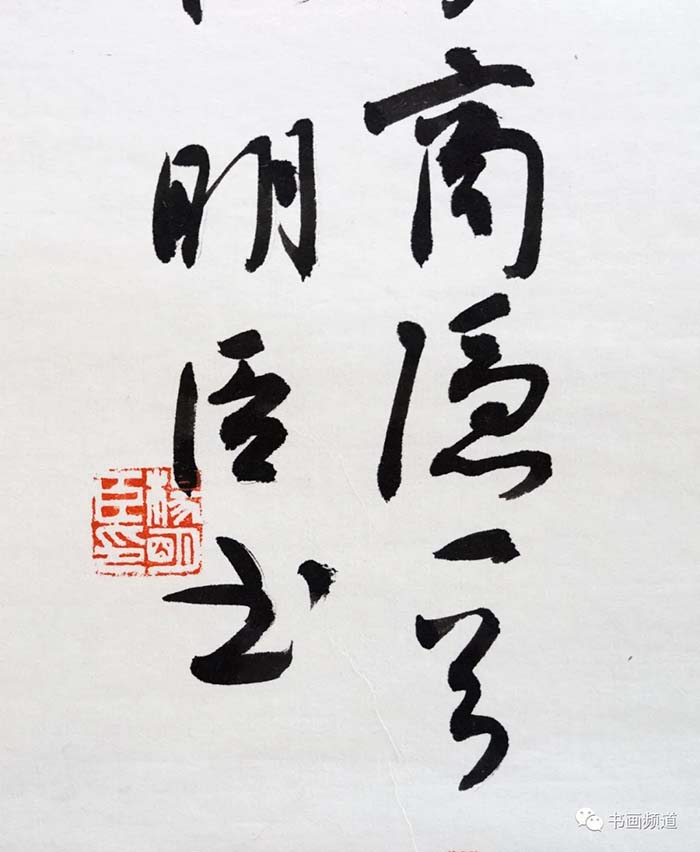 商隐一首
明臣书
楊明臣印
书画频道